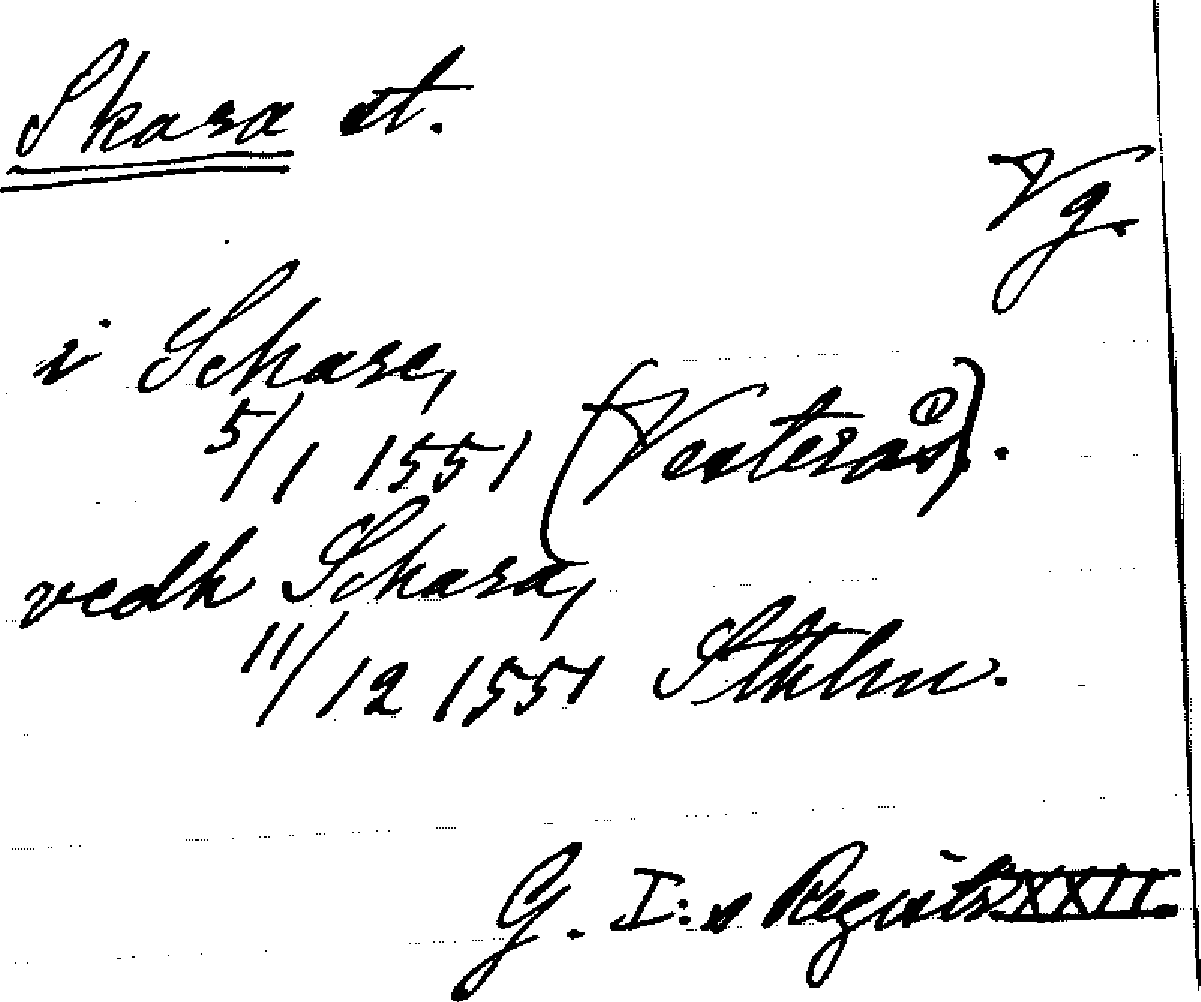 Skara st.
Vg.
i Schara,
5/1 1551 (Vesterås).
vedh Schara,
11/12 1551 Sthlm.
G. I:s Registr. XXII.